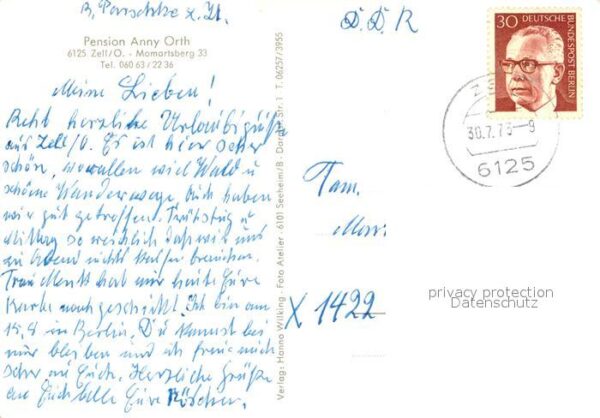 B.
z. Zt.
D.D.R
Pension Anny Orth
6125 Zell/O. - Momartsberg 33
Tel. 060 63 / 22 36
30
DEUTSCHE
BUNDESPOST BERLIN
30.7.73-9
6125
Meine Lieben!
Recht herzliche Urlaubsgrüße
aus Zell/O. Es ist hier sehr
schön, vor allen viel Wald u
schöne Wanderwege, auch haben
wir gut getroffen. Frühstück u
Mittag so reichlich daß wir uns
zu Abend nichts kaufen brauchen.
Frau hat mir heute Eure
Karte nachgeschickt. Ich bin am
15.8 in Berlin. Du kannst bei
mir bleiben und ich freue mich
sehr auf Euch. Herzliche Grüße
an Euch alle Eure
Verlag: Hanno Wilking - Foto Atelier - 6101 Seeheim/B - Str 1 T. 06257/3955
Fam.
X 1422
privacy protection
Datenschutz